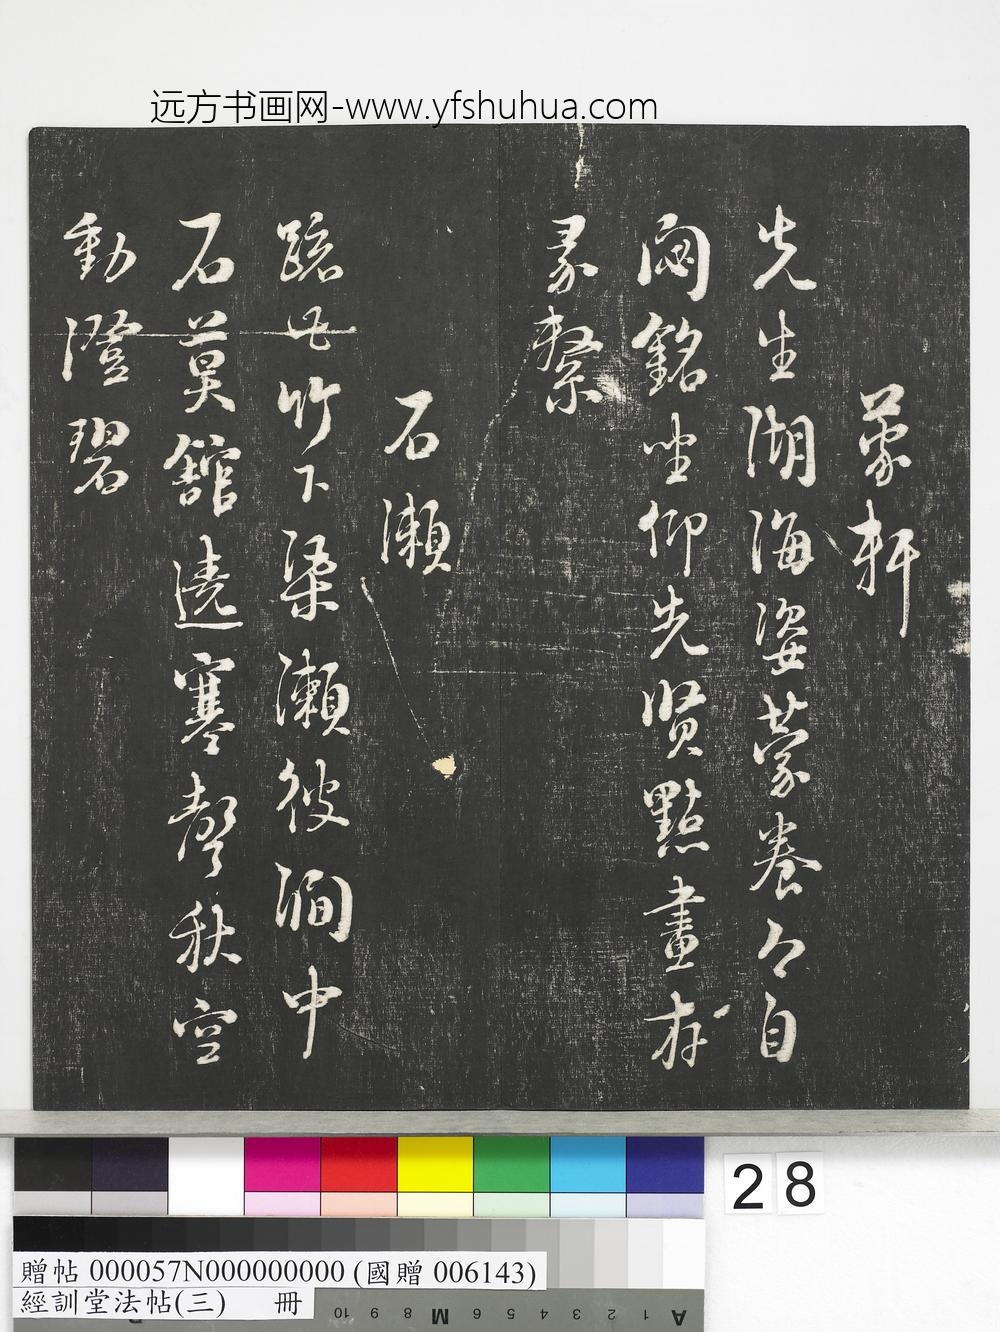 远方书画网-www.yfshuhua.com
蒙軒
先生湖海姿蒙養今自
閟銘坐仰先賢點畫存
彖繫
石瀨
疏此竹下渠瀨彼澗中
石莫館遶寒聲秋空
動澄碧
28
贈帖 000057N000000000 (國贈 006143)
經訓堂法帖(三) 冊
A 1 2 3 4 5 6 M 8 9 10